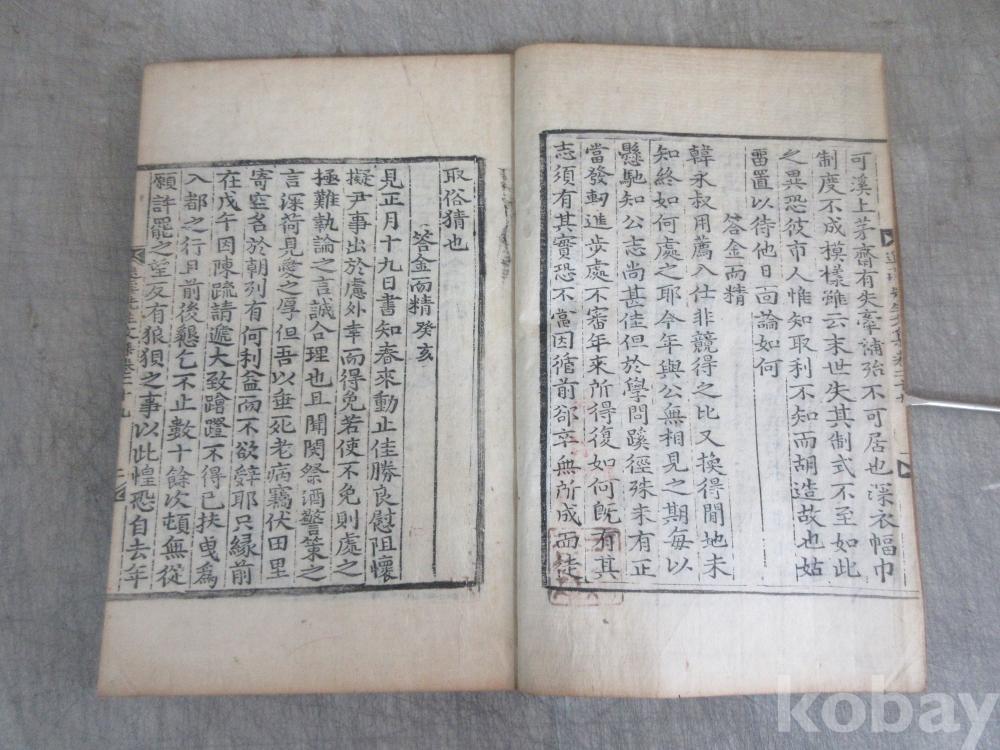 可溪上茅齋有失牽補殆不可居也深衣幅巾
制度不成模樣雖云末世失其制式不至如此
之異恐彼市人惟知取利不知而胡造故也姑
畱置以待他日面論如何
答金而精
韓永叔用薦入仕非競得之比又換得閒地未
知終如何處之耶今年與公無相見之期每以
懸馳知公志尚甚佳但於學問蹊徑殊未有正
當發軔進步處不審年來所得復如何旣有其
志須有其實恐不當因循前卻卒無所成而徒
取俗猜也
答金而精 癸亥
見正月十九日書知春來動止佳勝良慰阻懷
擬尹事出於慮外幸而得免若使不免則處之
極難執論之言誠合理也且聞閔祭酒警策之
言深荷見愛之厚但吾以垂死老病竊伏田里
寄空名於朝列有何利益而不欲辭耶只緣前
在戊午因陳疏請遞大致蹭蹬不得已扶曳爲
入都之行且前後懇乞不止數十餘次頓無從
願許罷之望反有狼狽之事以此惶恐自去年
kobay